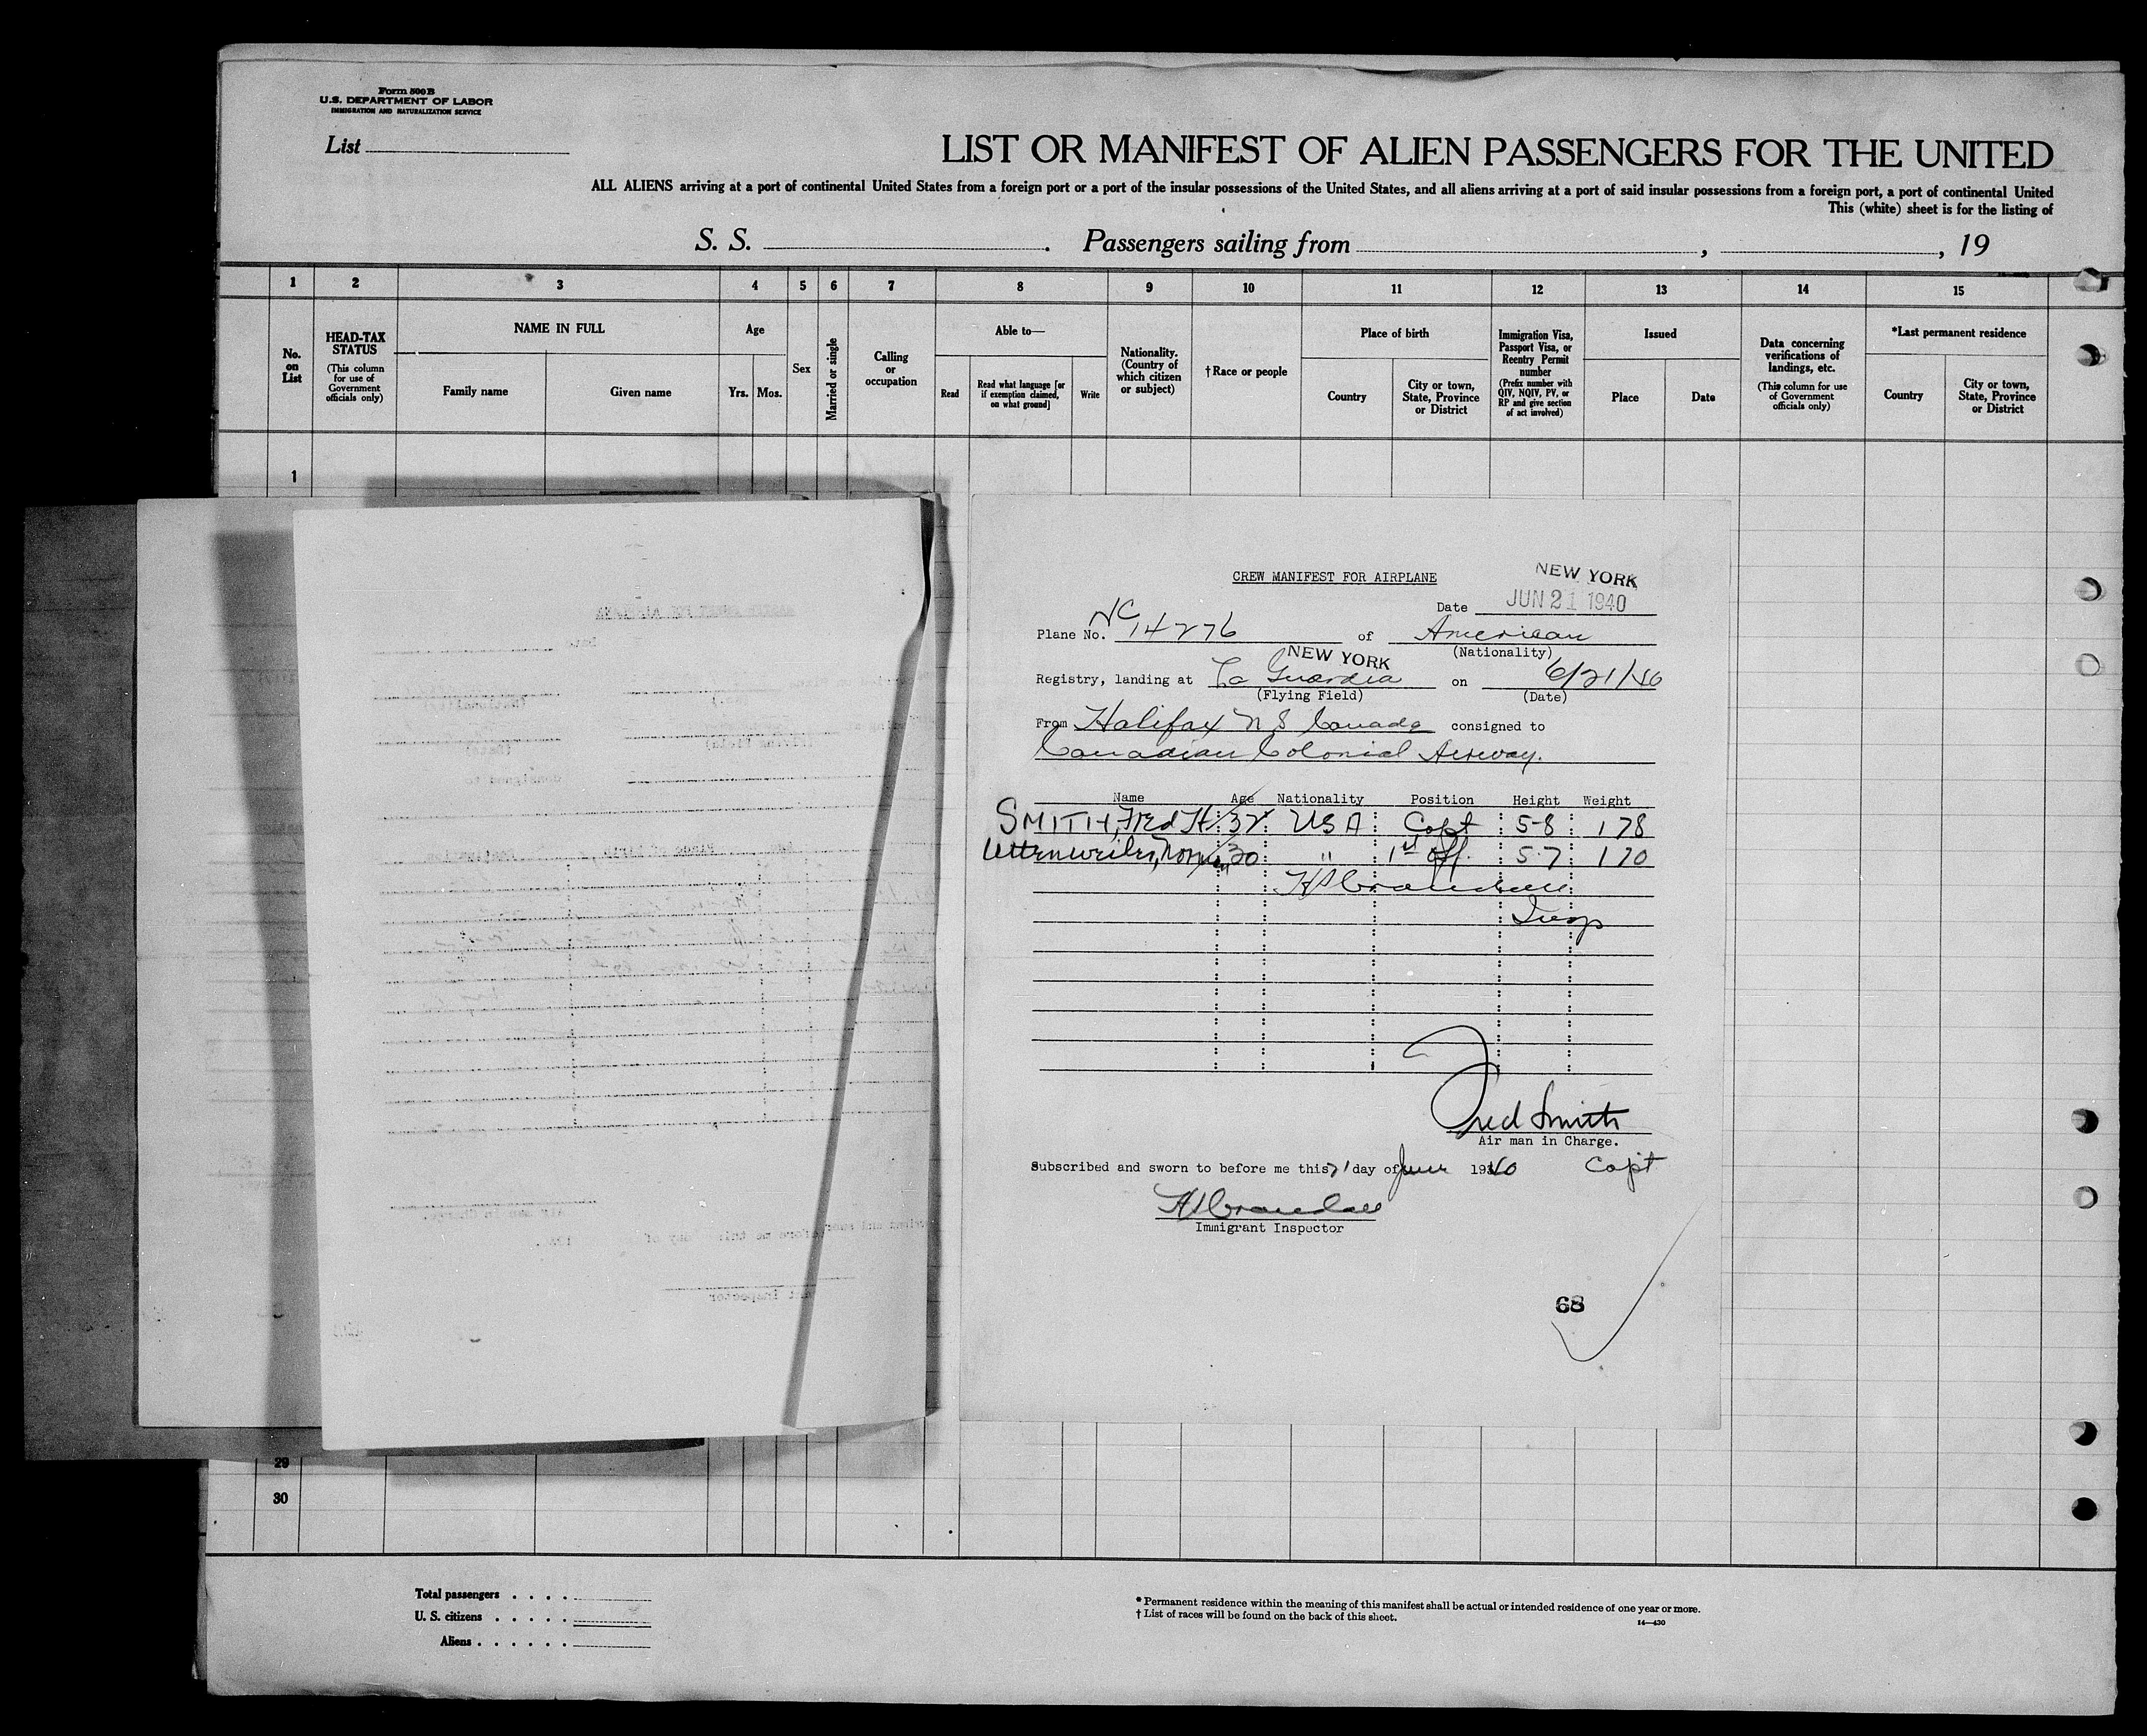 Form 500 B
U.S. DEPARTMENT OF LABOR
IMMIGRATION AND NATURALIZATION SERVICE
List
LIST OR MANIFEST OF ALIEN PASSENGERS FOR THE UNITED
ALL ALIENS arriving at a port of continental United States from a foreign port or a port of the insular possessions of the United States, and all aliens arriving at a port of said insular possessions from a foreign port, a port of continental United
This (white) sheet is for the listing of
S. S. . Passengers sailing from , , 19
1 2 3 4 5 6 7 8 9 10 11 12 13 14 15
No. on List
HEAD-TAX STATUS
(This column for use of Government officials only)
NAME IN FULL
Family name Given name
Age
Yrs. Mos.
Sex
Married or single
Calling or occupation
Able to—
Read
Read what language [or if exemption claimed, on what ground]
Write
Nationality. (Country of which citizen or subject)
†Race or people
Place of birth
Country
City or town, State, Province or District
Immigration Visa, Passport Visa, or Reentry Permit number
(Prefix number with QIV, NQIV, PV, or RP and give section of act involved)
Issued
Place Date
Data concerning verifications of landings, etc.
(This column for use of Government officials only)
*Last permanent residence
Country
City or town, State, Province or District
1
CREW MANIFEST FOR AIRPLANE
NEW YORK
Date JUN 21 1940
Plane No. NC 14276 of American
(Nationality)
NEW YORK
Registry, landing at La Guardia on 6/21/40
(Flying Field) (Date)
From Halifax N S Canada consigned to
Canadian Colonial Airway.
Name Age Nationality Position Height Weight
SMITH, Fred H. 32 USA Capt 5-8 178
30 " 1st Off. 5-7 170
Insp
Fred Smith
Air man in Charge.
Subscribed and sworn to before me this 21 day of June 1940 Capt
Immigrant Inspector
68
29
30
Total passengers . . . .
U. S. citizens . . . . .
Aliens . . . . . .
* Permanent residence within the meaning of this manifest shall be actual or intended residence of one year or more.
† List of races will be found on the back of this sheet.
14—430